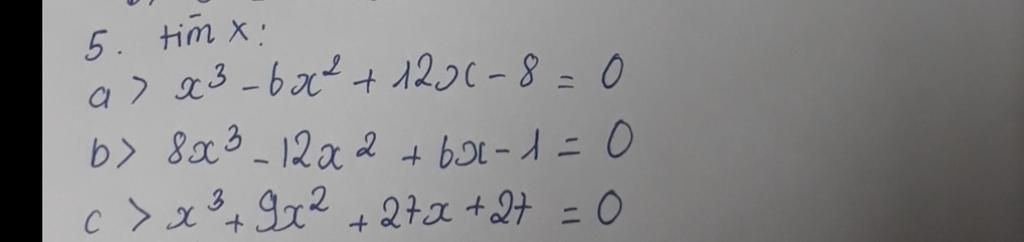 5. tìm x:
a> x³ - 6x² + 12x - 8 = 0
b> 8x³ - 12x² + 6x - 1 = 0
c> x³ + 9x² + 27x + 27 = 0